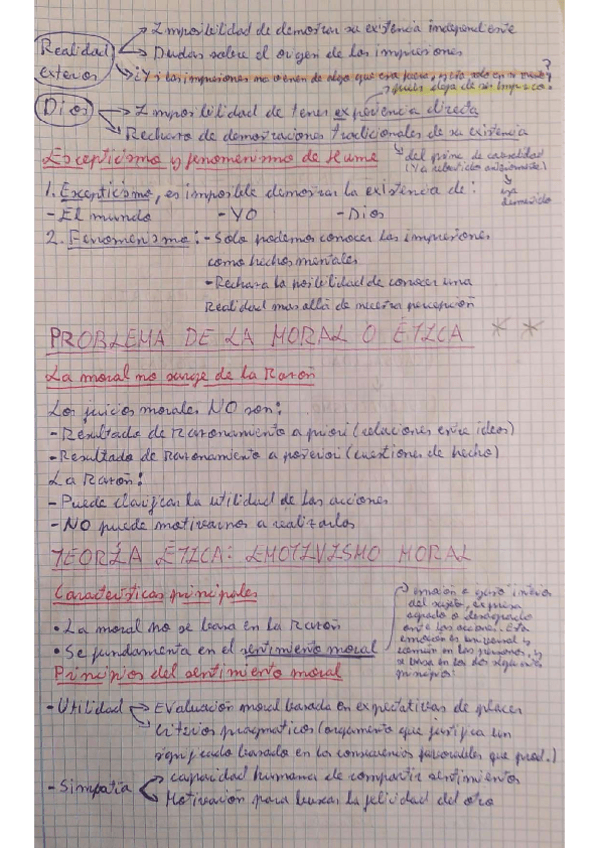 Realidad exterior
→ Imposibilidad de demostrar su existencia independiente
→ Dudas sobre el origen de las impresiones
→ ¿Y si las impresiones no vienen de algo que está fuera, y está solo en mi mente?
→ pues deja de ser Imp.
Dios
→ Imposibilidad de tener experiencia directa
→ Rechazo de demostraciones tradicionales de su existencia
Escepticismo y fenomenismo de Hume
↳ del princ. de causalidad
(Ya rebatido anteriormente)
1. Escepticismo, es imposible demostrar la existencia de:
- El mundo - YO - Dios
2. Fenomenismo: - Solo podemos conocer las impresiones
como hechos mentales
- Rechaza la posibilidad de conocer una
Realidad mas allá de nuestra percepción
PROBLEMA DE LA MORAL O ÉTICA * *
La moral no surge de la Razón
Los juicios morales NO son:
- Resultado de Razonamiento a priori (relaciones entre ideas)
- Resultado de Razonamiento a posteriori (cuestiones de hecho)
La Razón:
- Puede clarificar la utilidad de las acciones
- NO puede motivarnos a realizarlas
TEORÍA ÉTICA: EMOTIVISMO MORAL
Características principales
• La moral no se basa en la Razón
• Se fundamenta en el sentimiento moral
→ emoción o gusto interno
del sujeto, expresa
agrado o desagrado
ante las acciones. Esta
emoción es universal y
común en las personas, y
se basa en los dos siguientes
principios:
Principios del sentimiento moral
- Utilidad → Evaluación moral basada en expectativas de placer
→ Criterios pragmáticos (argumento que justifica un
significado basado en las consecuencias favorables que prod.)
- Simpatía → capacidad humana de compartir sentimientos
→ Motivación para buscar la felicidad del otro